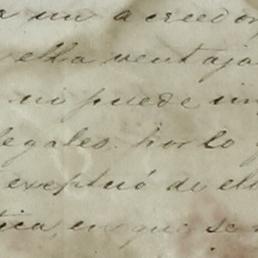 un acreedor
ella ventaja
no puede
legales. por lo
exeptuó de ell
tica, en que se